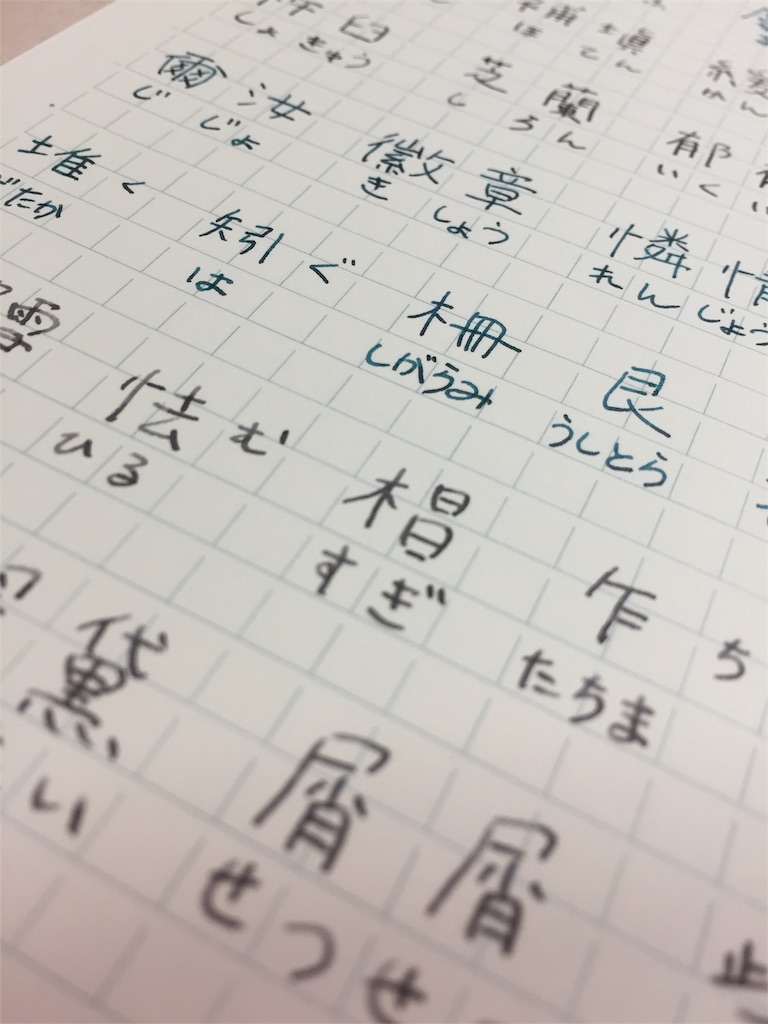 杵臼
しょ きゅう
芝蘭
し らん
郁
いく
爾汝
じ じょ
徽章
き しょう
憐情
れん じょう
堆く
うずたか
矧ぐ
は
柵
しがらみ
艮
うしとら
怯む
ひる
椙
すぎ
乍ち
たちま
黛
たい
屑屑
せつせ